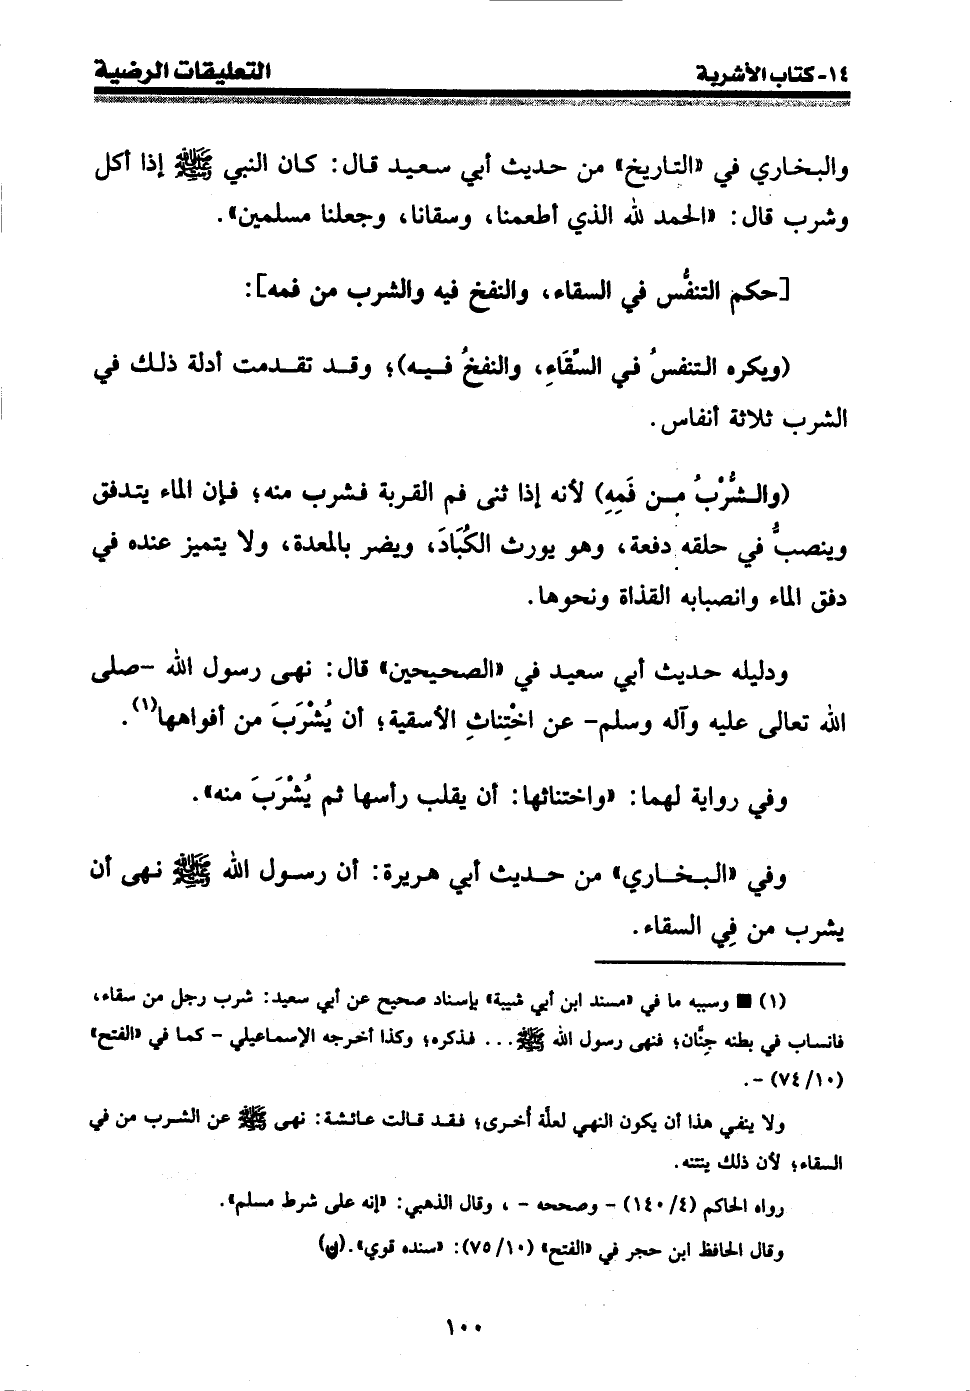 ١٤- كتاب الأشربة التعليقات الرضية
والبخاري في «التاريخ» من حديث أبي سعيد قال: كان النبي ﷺ إذا أكل
وشرب قال: «الحمد لله الذي أطعمنا، وسقانا، وجعلنا مسلمين».
[حكم التنفُّس في السقاء، والنفخ فيه والشرب من فمه]:
(ويكره التنفسُ في السِّقَاءِ، والنفخُ فيه)؛ وقد تقدمت أدلة ذلك في
الشرب ثلاثة أنفاس.
(والشُّرْبُ من فَمِهِ) لأنه إذا ثنى فم القربة فشرب منه؛ فإن الماء يتدفق
وينصبُّ في حلقه دفعة، وهو يورث الكُبَادَ، ويضر بالمعدة، ولا يتميز عنده في
دفق الماء وانصبابه القذاة ونحوها.
ودليله حديث أبي سعيد في «الصحيحين» قال: نهى رسول الله -صلى
الله تعالى عليه وآله وسلم- عن اخْتِناثِ الأسقية؛ أن يُشْرَبَ من أفواهها(١).
وفي رواية لهما: «واختناثها: أن يقلب رأسها ثم يُشْرَبَ منه».
وفي «البخاري» من حديث أبي هريرة: أن رسول الله ﷺ نهى أن
يشرب من فِي السقاء.
(١) ■ وسببه ما في «مسند ابن أبي شيبة» بإسناد صحيح عن أبي سعيد: شرب رجل من سقاء،
فانساب في بطنه جِنَّان؛ فنهى رسول الله ﷺ... فذكره؛ وكذا أخرجه الإسماعيلي - كما في «الفتح»
(١٠/ ٧٤) -.
ولا ينفي هذا أن يكون النهي لعلَّة أُخرى؛ فقد قالت عائشة: نهى ﷺ عن الشرب من في
السقاء؛ لأن ذلك ينتنه.
رواه الحاكم (٤/ ١٤٠) - وصححه - ، وقال الذهبي: «إنه على شرط مسلم».
وقال الحافظ ابن حجر في «الفتح» (١٠/ ٧٥): «سنده قوي».(ن)
١٠٠